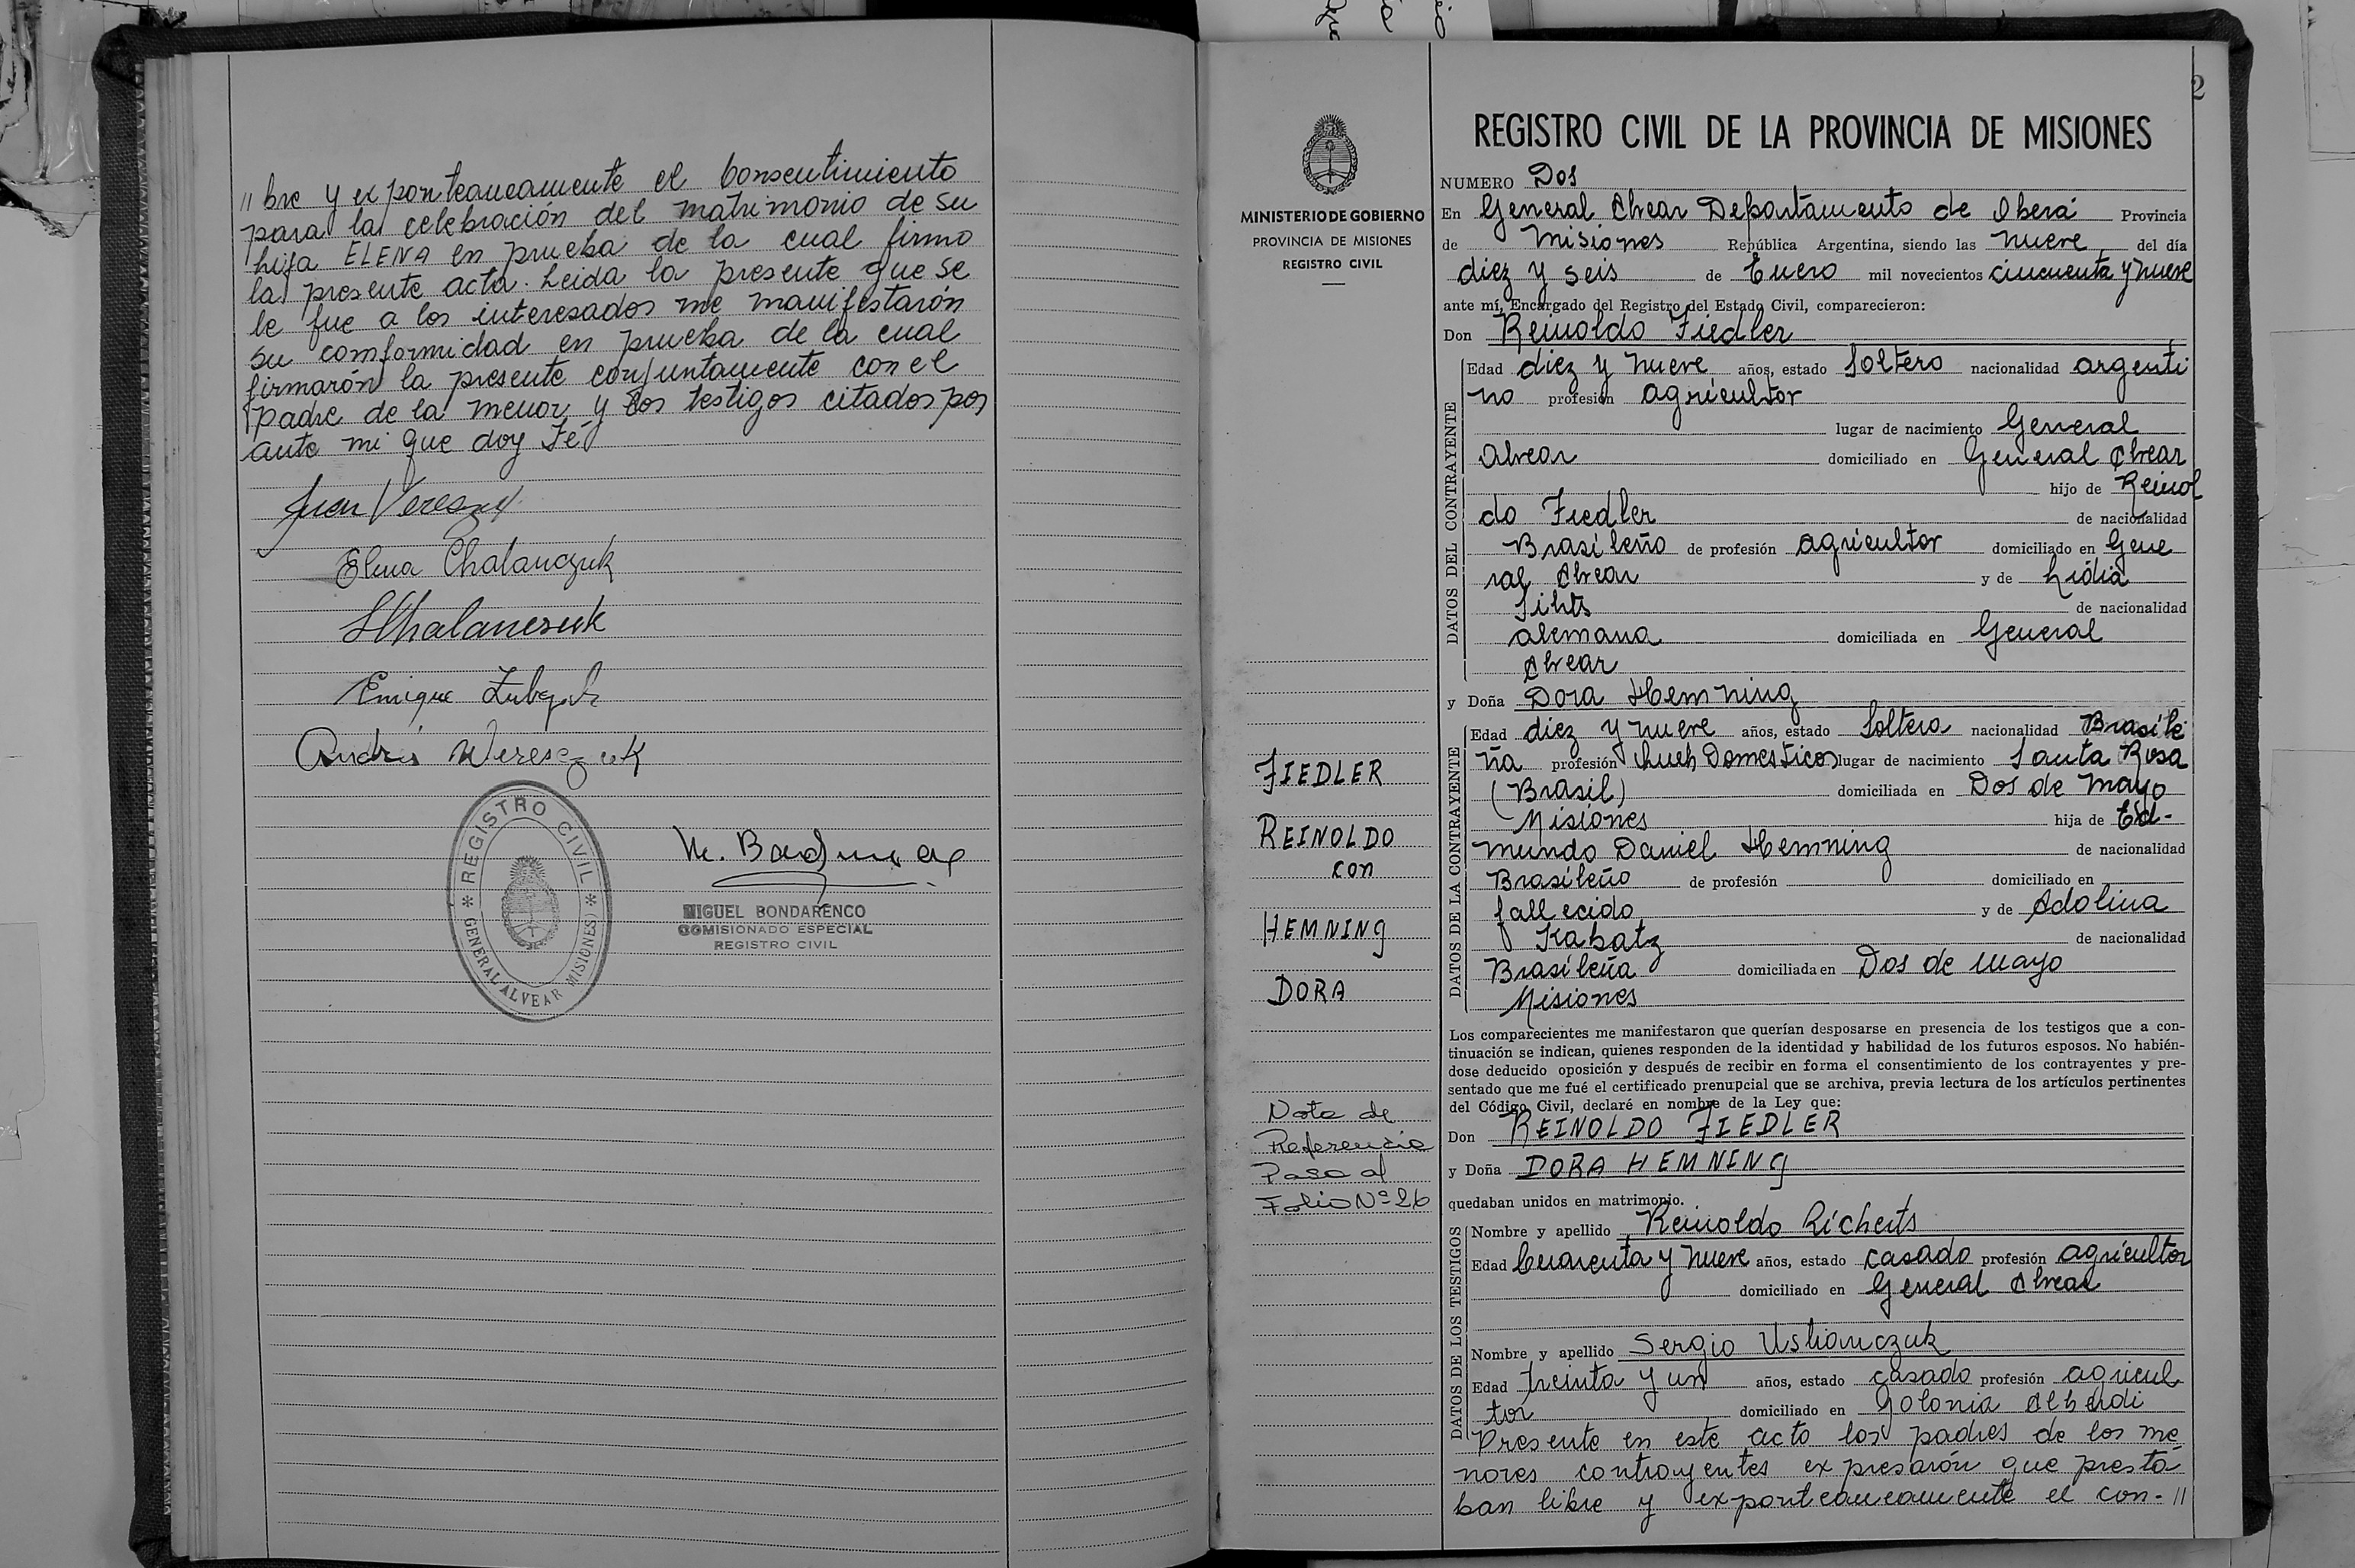 "bre y exponteaneamente el Consentimiento
para la celebración del matrimonio de su
hija ELENA en prueba de la cual firmo
la presente acta. Leida la presente que se
le fue a los interesados me manifestarón
su comformidad en prueba de la cual
firmarón la presente conjuntamente con el
padre de la menor y los testigos citados por
ante mi que doy Fé
Juan
Elena Chalanczuk
Enrique
Andrés Weresczuk
REGISTRO CIVIL
GENERAL ALVEAR MISIONES
MIGUEL BONDARENCO
COMISIONADO ESPECIAL
REGISTRO CIVIL
2
MINISTERIO DE GOBIERNO
PROVINCIA DE MISIONES
REGISTRO CIVIL
FIEDLER
REINOLDO
con
HEMNING
DORA
Nota de
Referencia
Pasa al
Folio Nº 26
REGISTRO CIVIL DE LA PROVINCIA DE MISIONES
NUMERO Dos
En General Alvear Departamento de Oberá Provincia
de Misiones República Argentina, siendo las nueve del día
diez y seis de Enero mil novecientos cincuenta y nueve
ante mí, Encargado del Registro del Estado Civil, comparecieron:
Don Reinoldo Fiedler
DATOS DEL CONTRAYENTE
Edad diez y nueve años, estado Soltero nacionalidad argenti
no profesión agricultor
lugar de nacimiento General
Alvear domiciliado en General Alvear
hijo de Reinol
do Fiedler de nacionalidad
Brasileño de profesión agricultor domiciliado en Gene
ral Alvear y de Lidia
de nacionalidad
alemana domiciliada en General
Alvear
y Doña Dora Hemning
DATOS DE LA CONTRAYENTE
Edad diez y nueve años, estado Soltera nacionalidad Brasile
ña profesión Domesticos lugar de nacimiento Santa Rosa
(Brasil) domiciliada en Dos de Mayo
Misiones hija de Ed-
mundo Daniel Hemning de nacionalidad
Brasileño de profesión domiciliado en
fallecido y de Adolina
Kabatz de nacionalidad
Brasileña domiciliada en Dos de Mayo
Misiones
Los comparecientes me manifestaron que querían desposarse en presencia de los testigos que a con-
tinuación se indican, quienes responden de la identidad y habilidad de los futuros esposos. No habién-
dose deducido oposición y después de recibir en forma el consentimiento de los contrayentes y pre-
sentado que me fué el certificado prenupcial que se archiva, previa lectura de los artículos pertinentes
del Código Civil, declaré en nombre de la Ley que:
Don REINOLDO FIEDLER
y Doña DORA HEMNING
quedaban unidos en matrimonio.
DATOS DE LOS TESTIGOS
Nombre y apellido Reinoldo Richerts
Edad Cuarenta y nueve años, estado casado profesión agricultor
domiciliado en General Alvear
Nombre y apellido Sergio Ustianczuk
Edad treinta y un años, estado casado profesión agricul
tor domiciliado en Colonia Alberdi
Presente en este acto los padres de los me
nores contrayentes expresarón que presta
ban libre y exponteaneamente el con-"